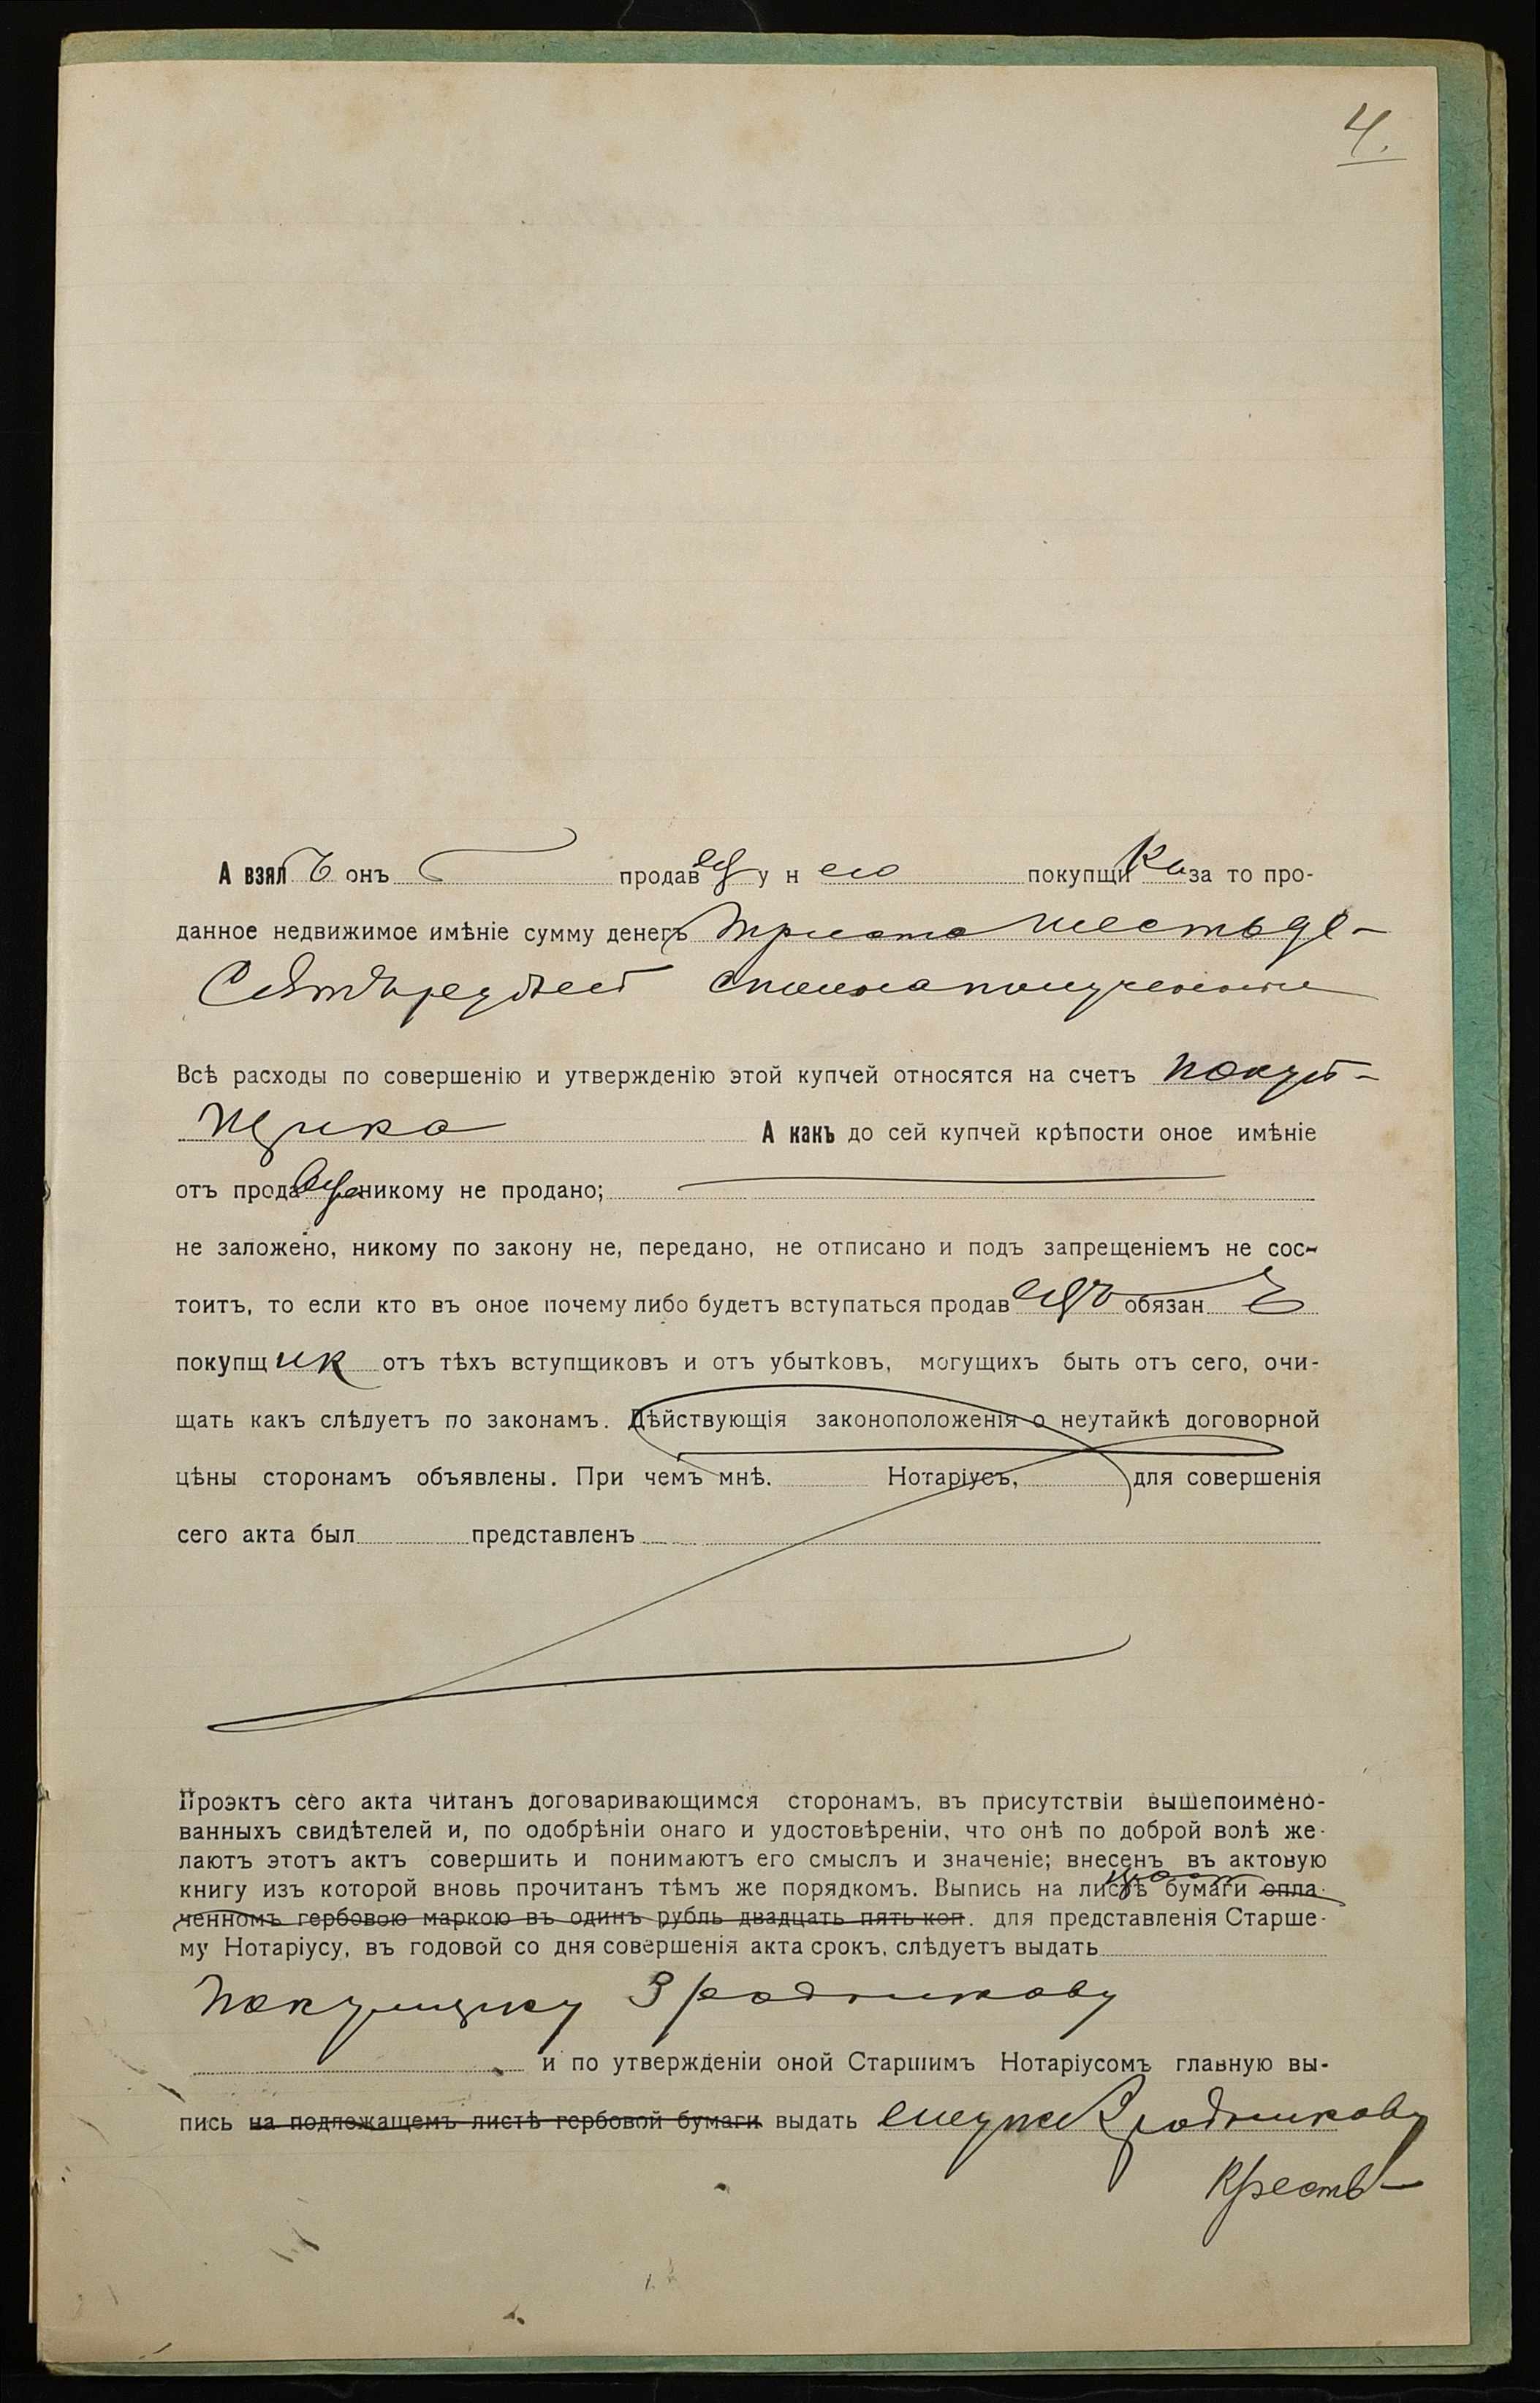 4.
А взялъ онъ продавецъ у него покупщика за то про-
данное недвижимое имѣніе сумму денегъ триста шестьде-
сятъ рублей сполна полученныя
Всѣ расходы по совершенію и утвержденію этой купчей относятся на счетъ покуп-
щика А какъ до сей купчей крѣпости оное имѣніе
отъ продавца никому не продано;
не заложено, никому по закону не, передано, не отписано и подъ запрещеніемъ не сос-
тоитъ, то если кто въ оное почему либо будетъ вступаться продавецъ обязанъ
покупщик отъ тѣхъ вступщиковъ и отъ убытковъ, могущихъ быть отъ сего, очи-
щать какъ слѣдуетъ по законамъ. Дѣйствующія законоположенія о неутайкѣ договорной
цѣны сторонамъ объявлены. При чемъ мнѣ. Нотаріусъ, для совершенія
сего акта был представленъ
Проэктъ сего акта читанъ договаривающимся сторонамъ, въ присутствіи вышепоимено-
ванныхъ свидѣтелей и, по одобрѣніи онаго и удостовѣреніи, что онѣ по доброй волѣ же-
лаютъ этотъ актъ совершить и понимаютъ его смыслъ и значеніе; внесенъ въ актовую
книгу изъ которой вновь прочитанъ тѣмъ же порядкомъ. Выпись на листѣ бумаги опла-
ченномъ гербовою маркою въ одинъ рубль двадцать пять коп. для представленія Старше-
му Нотаріусу, въ годовой со дня совершенія акта срокъ, слѣдуетъ выдать
Покупщику Зродникову
и по утвержденіи оной Старшимъ Нотаріусомъ главную вы-
пись на подлежащемъ листѣ гербовой бумаги выдать ему же Зродникову
Кресть-